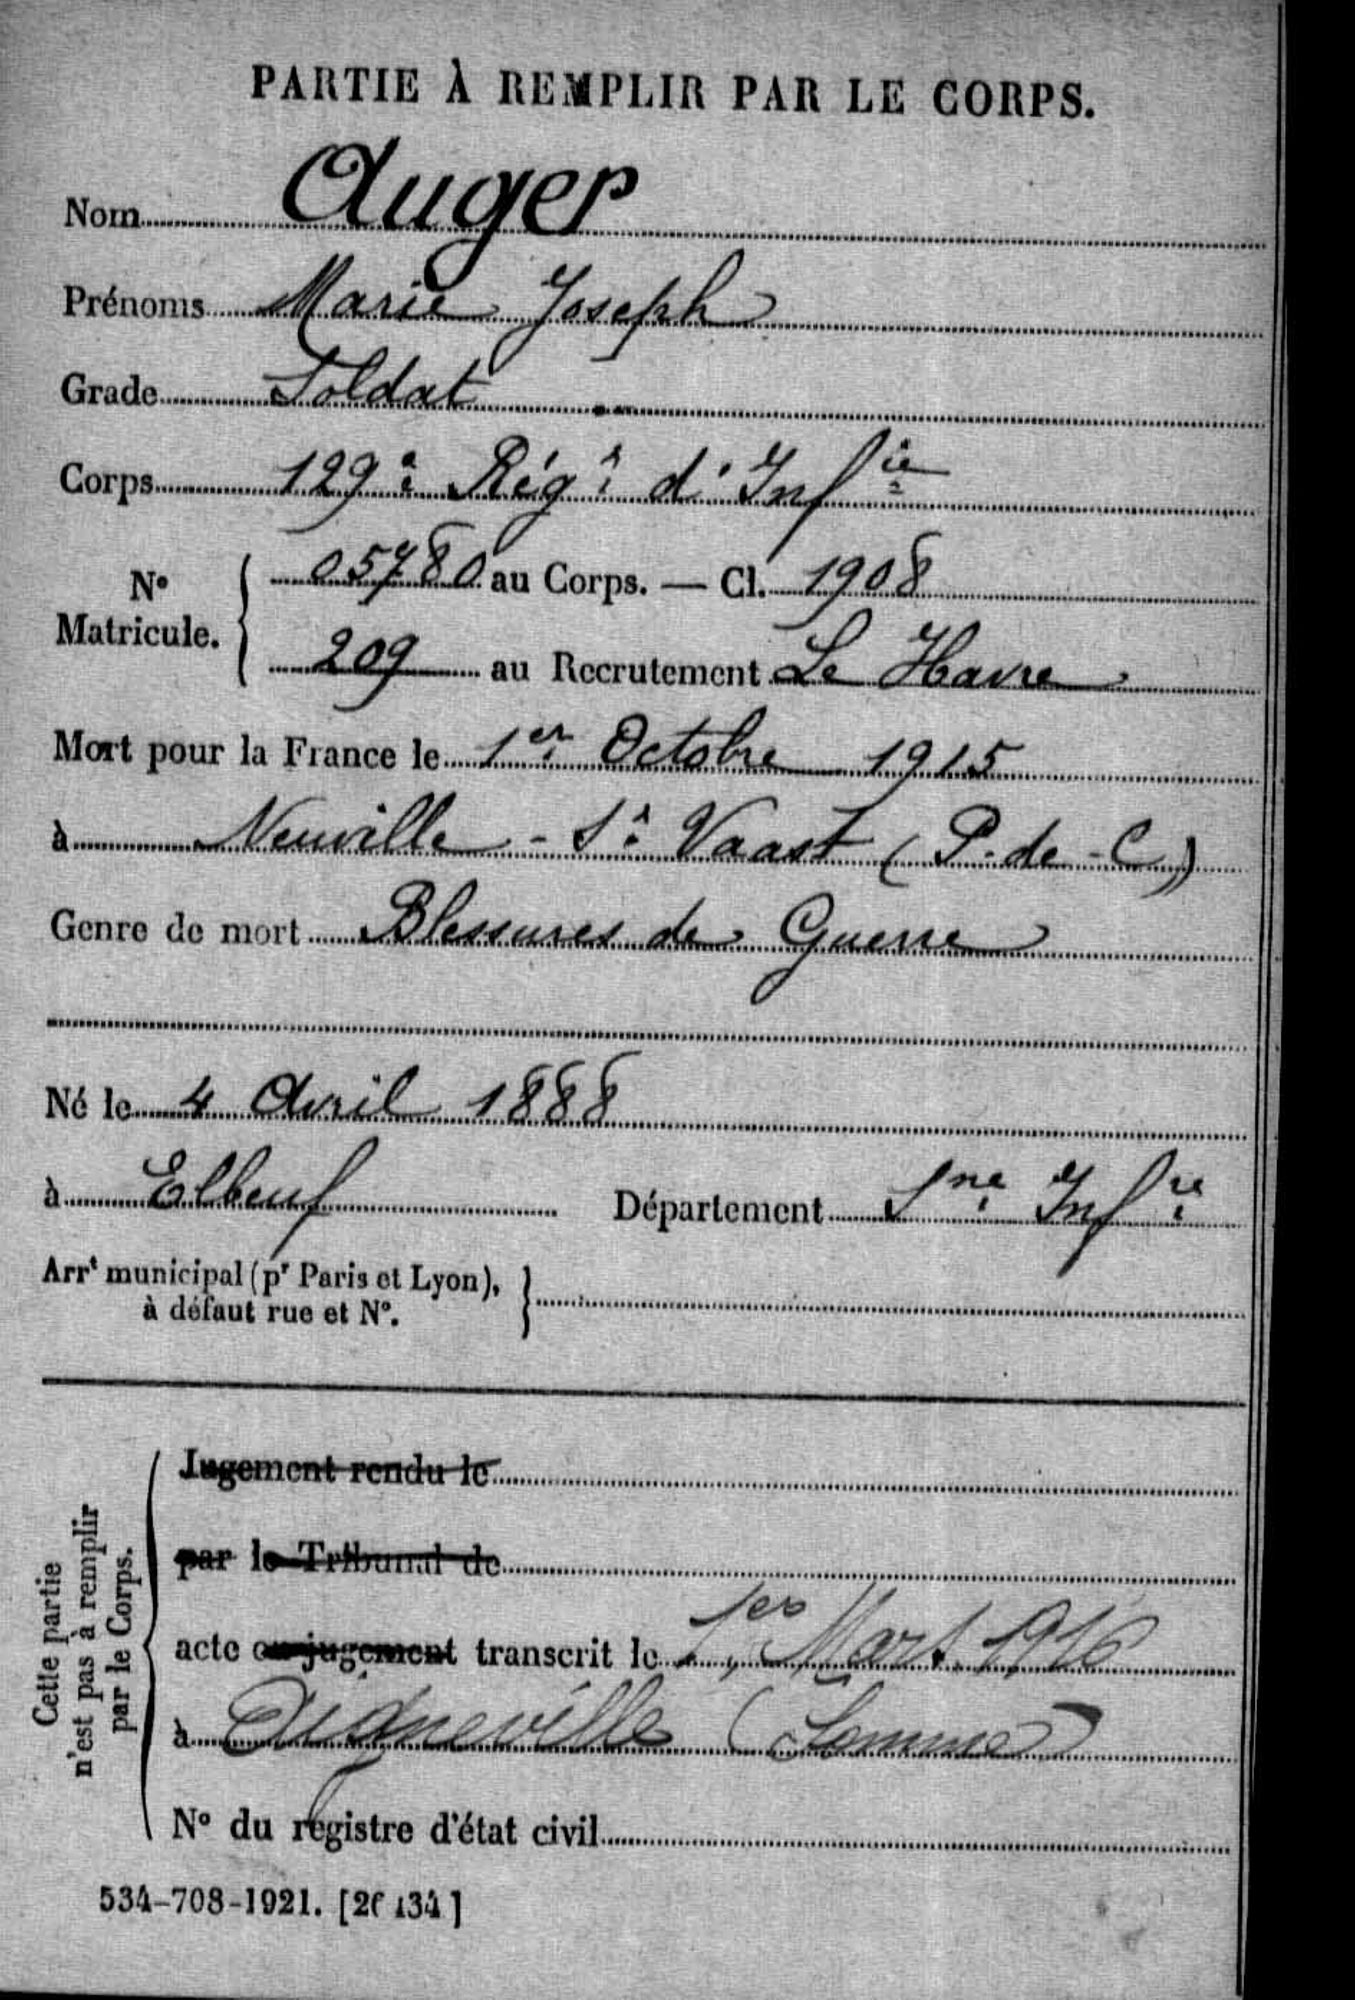 PARTIE À REMPLIR PAR LE CORPS.
Nom Auger
Prénoms Marie Joseph
Grade Soldat
Corps 129e Régt d'Infie
No Matricule. 05780 au Corps. — Cl. 1908
209 au Recrutement Le Havre
Mort pour la France le 1er Octobre 1915
à Neuville - St Vaast (P-de-C)
Genre de mort Blessures de Guerre
Né le 4 Avril 1888
à Elbeuf Département Sne Infre
Arrt municipal (pr Paris et Lyon),
à défaut rue et No.
Cette partie
n'est pas à remplir
par le Corps.
Jugement rendu le
par le Tribunal de
acte ou jugement transcrit le 1er Mars 1916
à Aigneville (Somme)
No du registre d'état civil
534-708-1921. [26134]